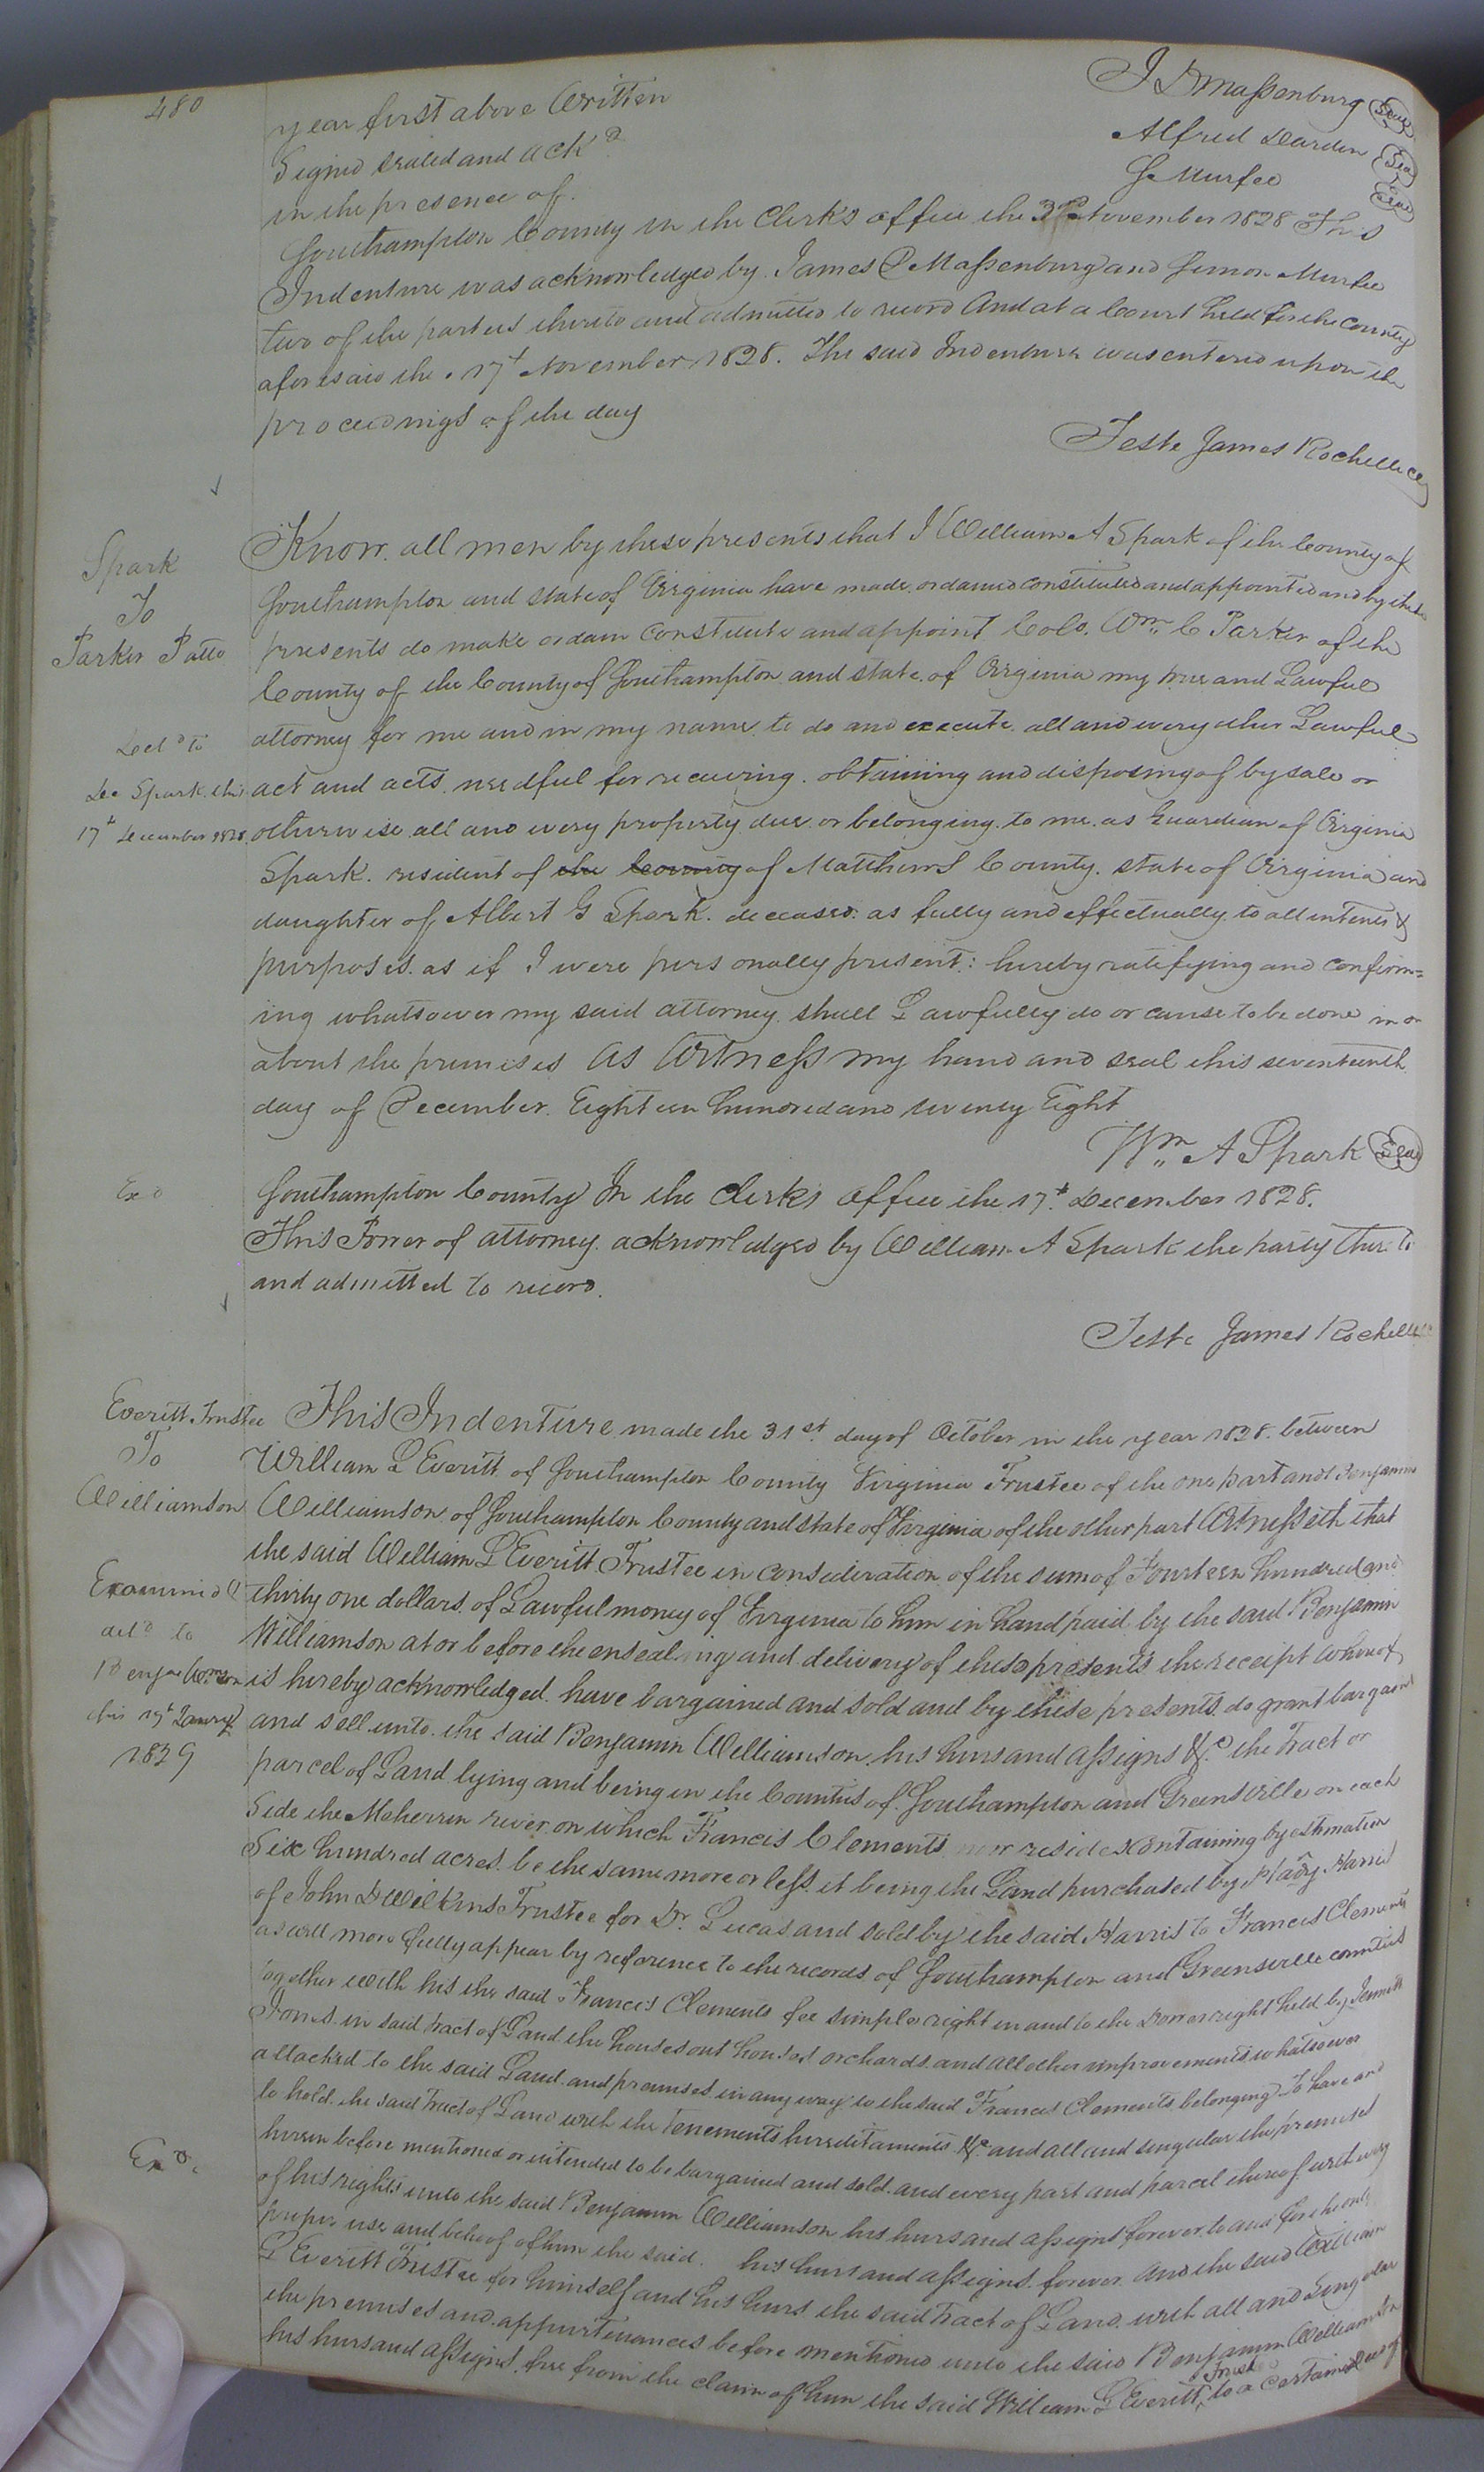 480
year first above Written
Signed sealed and ackd
in the presence of
J D Massenburg Seal
Alfred Darden Seal
S. Murfee Seal
Southampton County in the Clerks office the 3d November 1828 This
Indenture was acknowledged by James D Massenburg and Simon Murfee
two of the parties thereto and admitted to record And at a Court held for the County
aforesaid the 17t November 1828. The said Indenture was entered upon the
proceedings of the day
Teste James Rochelle
Spark
To
Parker P atto
Know all men by these presents that I William A Spark of the County of
Southampton and state of Virginia have made ordained constituted and appointed and by these
presents do make ordain Constitute and appoint Colo. Wm. C Parker of the
County of the County of Southampton and state of Virginia my true and Lawful
attorney for me and in my name to do and execute all and every other Lawful
act and acts needful for recovering obtaining and disposing of by sale or
otherwise all and every property due or belonging to me as Guardian of Virginia
Spark resident of the County of Matthews County state of Virginia and
daughter of Albert G Spark deceased as fully and effectually to all intents &
purposes as if I were personally present: hereby ratifying and confirm=
ing whatsoever my said attorney shall Lawfully do or cause to be done in or
about the premises As Witness my hand and seal this seventeenth
day of December Eighteen hundred and twenty Eight
Wm A Spark Seal
Deld to
Spark this
17t December 1828
Exd
Southampton County In the Clerks office the 17t December 1828.
This Power of attorney acknowledged by William A Spark the party thereto
and admitted to record.
Teste James Rochelle
Everitt Trustee
To
Williamson
This Indenture made the 31st day of October in the year 1828 between
William L Everitt of Southampton County Virginia Trustee of the one part and Benjamin
Williamson of Southampton County and state of Virginia of the other part Witnesseth that
the said William L Everitt Trustee in consideration of the sum of Fourteen hundred and
thirty one dollars of Lawful money of Virginia to him in hand paid by the said Benjamin
Williamson at or before the ensealing and delivery of these presents the receipt whereof
is hereby acknowledged have bargained and sold and by these presents do grant bargain
and sell unto the said Benjamin Williamson his heirs and assigns &c the Tract or
parcel of Land lying and being in the Counties of Southampton and Greensville on each
side the Meherrin river on which Francis Clements now reside containing by estimation
six hundred acres be the same more or less it being the Land purchased by Harris
of John D Wilkins Trustee for Dr. Lucas and sold by the said Harris to Francis Clements
as will more fully appear by reference to the records of Southampton and Greensville counties
together with his the said Francis Clements fee simple right in and to the Dower right held by
Jones in said tract of Land the houses out houses orchards and all other improvements whatsoever
attached to the said Land and premises in any way to the said Francis Clements belonging To have and
to hold the said Tract of Land with the Tenements hereditaments &c and all and singular the premises
herein before mentioned or intended to be bargained and sold and every part and parcel thereof with every
of his rights unto the said Benjamin Williamson his heirs and assigns forever to and for the only
proper use and behoof of him the said his heirs and assigns forever And the said William
L Everitt Trustee for himself and his heirs the said tract of Land with all and singular
the premises and appurtenances before mentioned unto the said Benjamin Williamson
his heirs and assigns free from the claim of him the said William L Everitt Trustee to a certain deed of
Examined
deld to
this 19t Jany
1829
Exd.